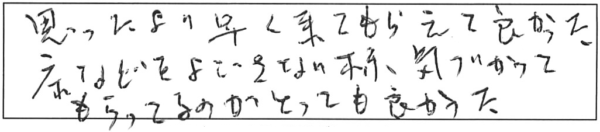 思ったより早く来てもらえて良かった
床などをよごさない様、気づかって
もらってるのがとっても良かった